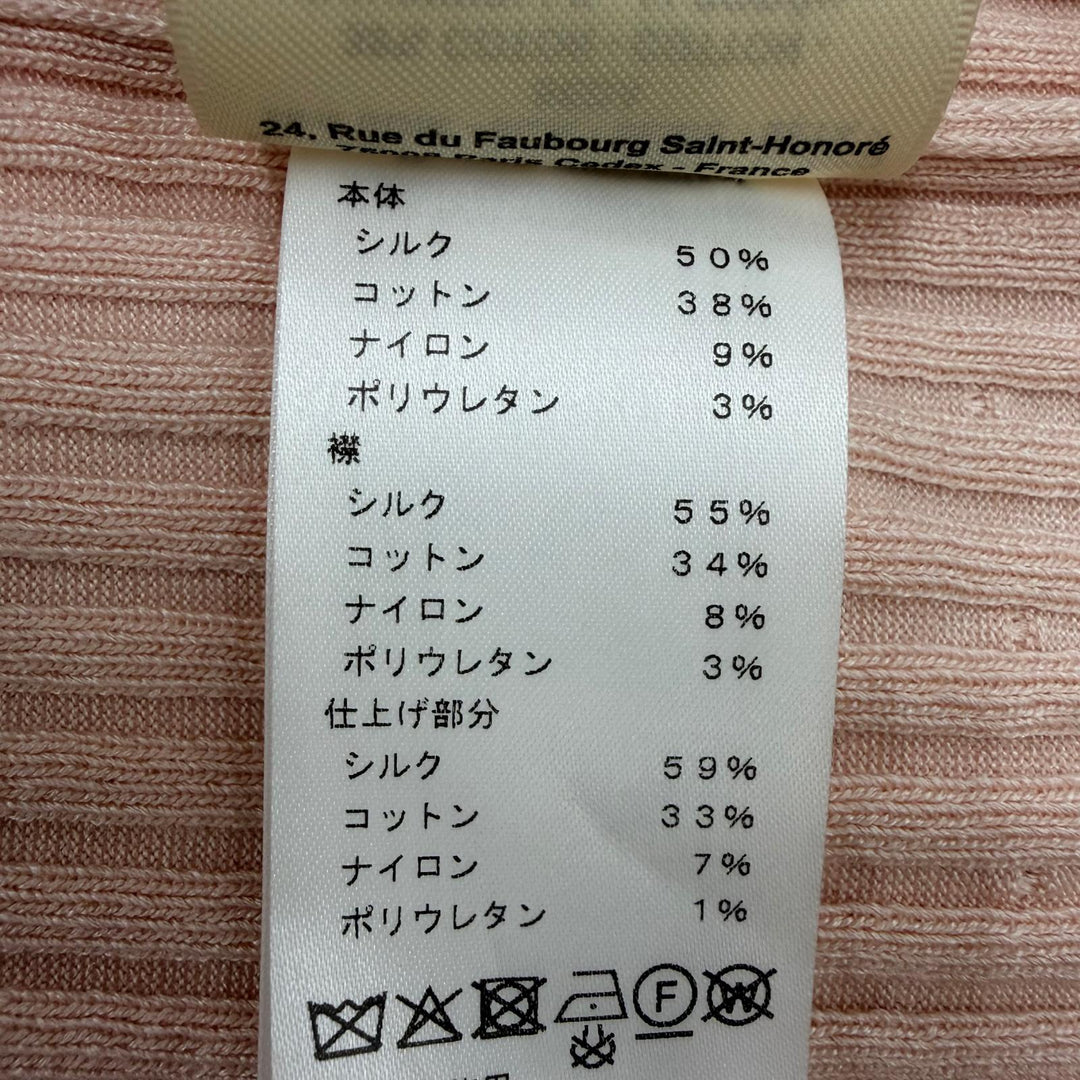 24, Rue du Faubourg Saint-Honoré
75008 Paris Cedex - France
本体
シルク 50%
コットン 38%
ナイロン 9%
ポリウレタン 3%
襟
シルク 55%
コットン 34%
ナイロン 8%
ポリウレタン 3%
仕上げ部分
シルク 59%
コットン 33%
ナイロン 7%
ポリウレタン 1%
F
W